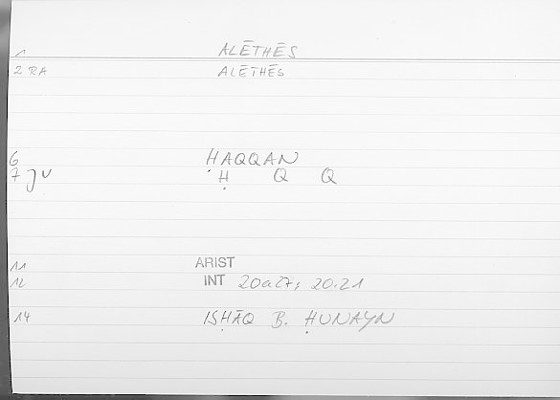 1 ALĒTHĒS
2 RA ALĒTHĒS
6 ḤAQQAN
7 JV Ḥ Q Q
11 ARIST
12 INT 20a27; 20.21
14 ISḤĀQ B. ḤUNAYN